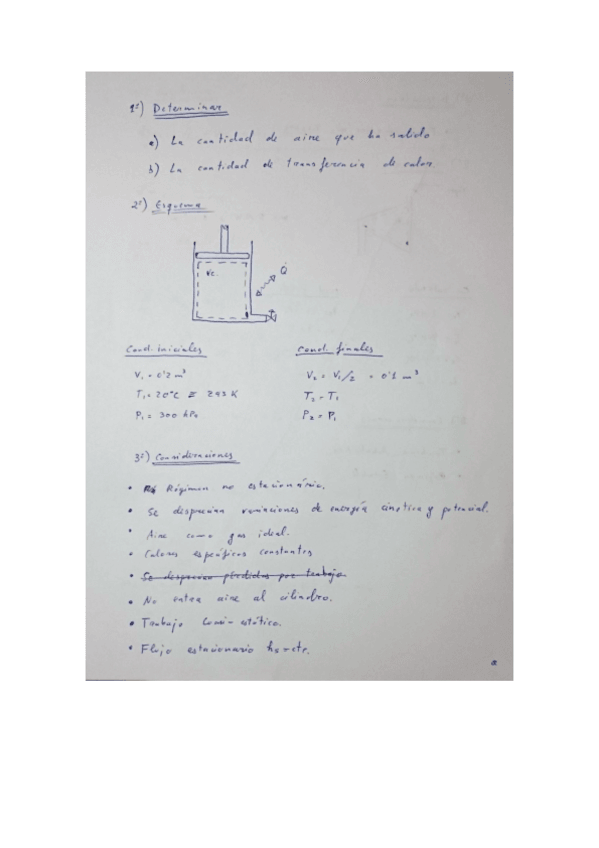 1º) Determinar
a) La cantidad de aire que ha salido
b) La cantidad de transferencia de calor
2º) Esquema
Vc.
Q̇
Cond. iniciales
V₁ = 0'2 m³
T₁ = 20°C ≡ 293 K
P₁ = 300 kPa
Cond. finales
V₂ = V₁/2 = 0'1 m³
T₂ = T₁
P₂ = P₁
3º) Consideraciones
• Régimen no estacionario.
• Se desprecian variaciones de energía cinética y potencial.
• Aire como gas ideal.
• Calores específicos constantes
• Se desprecian pérdidas por trabajo
• No entra aire al cilindro.
• Trabajo cuasi-estático.
• Flujo estacionario hs = cte.